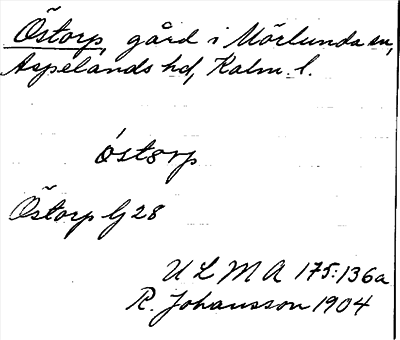 Östorp, gård i Mörlunda sn,
Aspelands hd, Kalm. l.
östorp
Östorp G 28
ULMA 175:136a
R. Johansson 1904